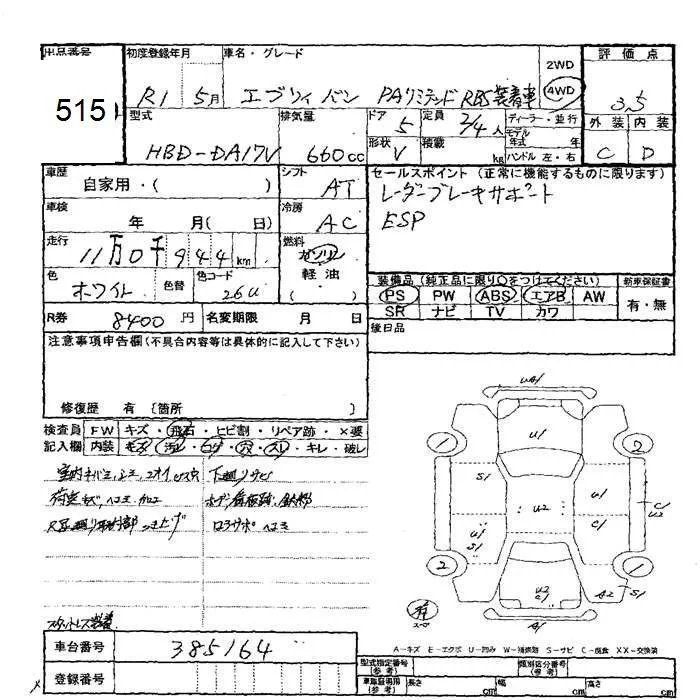 出品番号 初度登録年月 車名・グレード 評価点
515
R1 5月 エブリィバン PAリミテッド RBS装着車 2WD 4WD 3.5
型式 排気量 ドア 定員 ディーラー・並行 外装 内装
HBD-DA17V 660cc 5 2/4人 モデル年式 年 C D
形状 V 積載 kg ハンドル 左・右
車歴 シフト セールスポイント(正常に機能するものに限ります)
自家用・( ) AT レーダーブレーキサポート
車検 冷房 ESP
年 月( 日) AC
走行 燃料
11万0千944km ガソリン
軽油
( )
色 色替 色コード
ホワイト 26U
装備品(純正品に限り○をつけてください) 新車保証書
PS PW ABS エアB AW 有・無
SR ナビ TV カワ
R券 8400円 名変期限 月 日
後日品
注意事項申告欄(不具合内容等は具体的に記入して下さい)
修復歴 有 〔箇所 〕
検査員 FW キズ・飛石・ヒビ割・リペア跡・×要
記入欄 内装 キズ・汚レ・コゲ・穴・スレ・キレ・破レ
下廻りサビ
荷室キズ、ヘコミ
コアサポヘコミ
スタットレス装着
UA1
U1
1 2
S1 U1 C1 U2
U2
U1 S1 C1
2 1
U2 C1
A2 S1
A1
有
スペア
車台番号 385164
登録番号
A-キズ E-エクボ U-凹み W-補修跡 S-サビ C-腐食 XX-交換済
型式指定番号(参考) 類別区分番号(参考)
車庫証明用(参考) 長さ cm 幅 cm 高さ cm